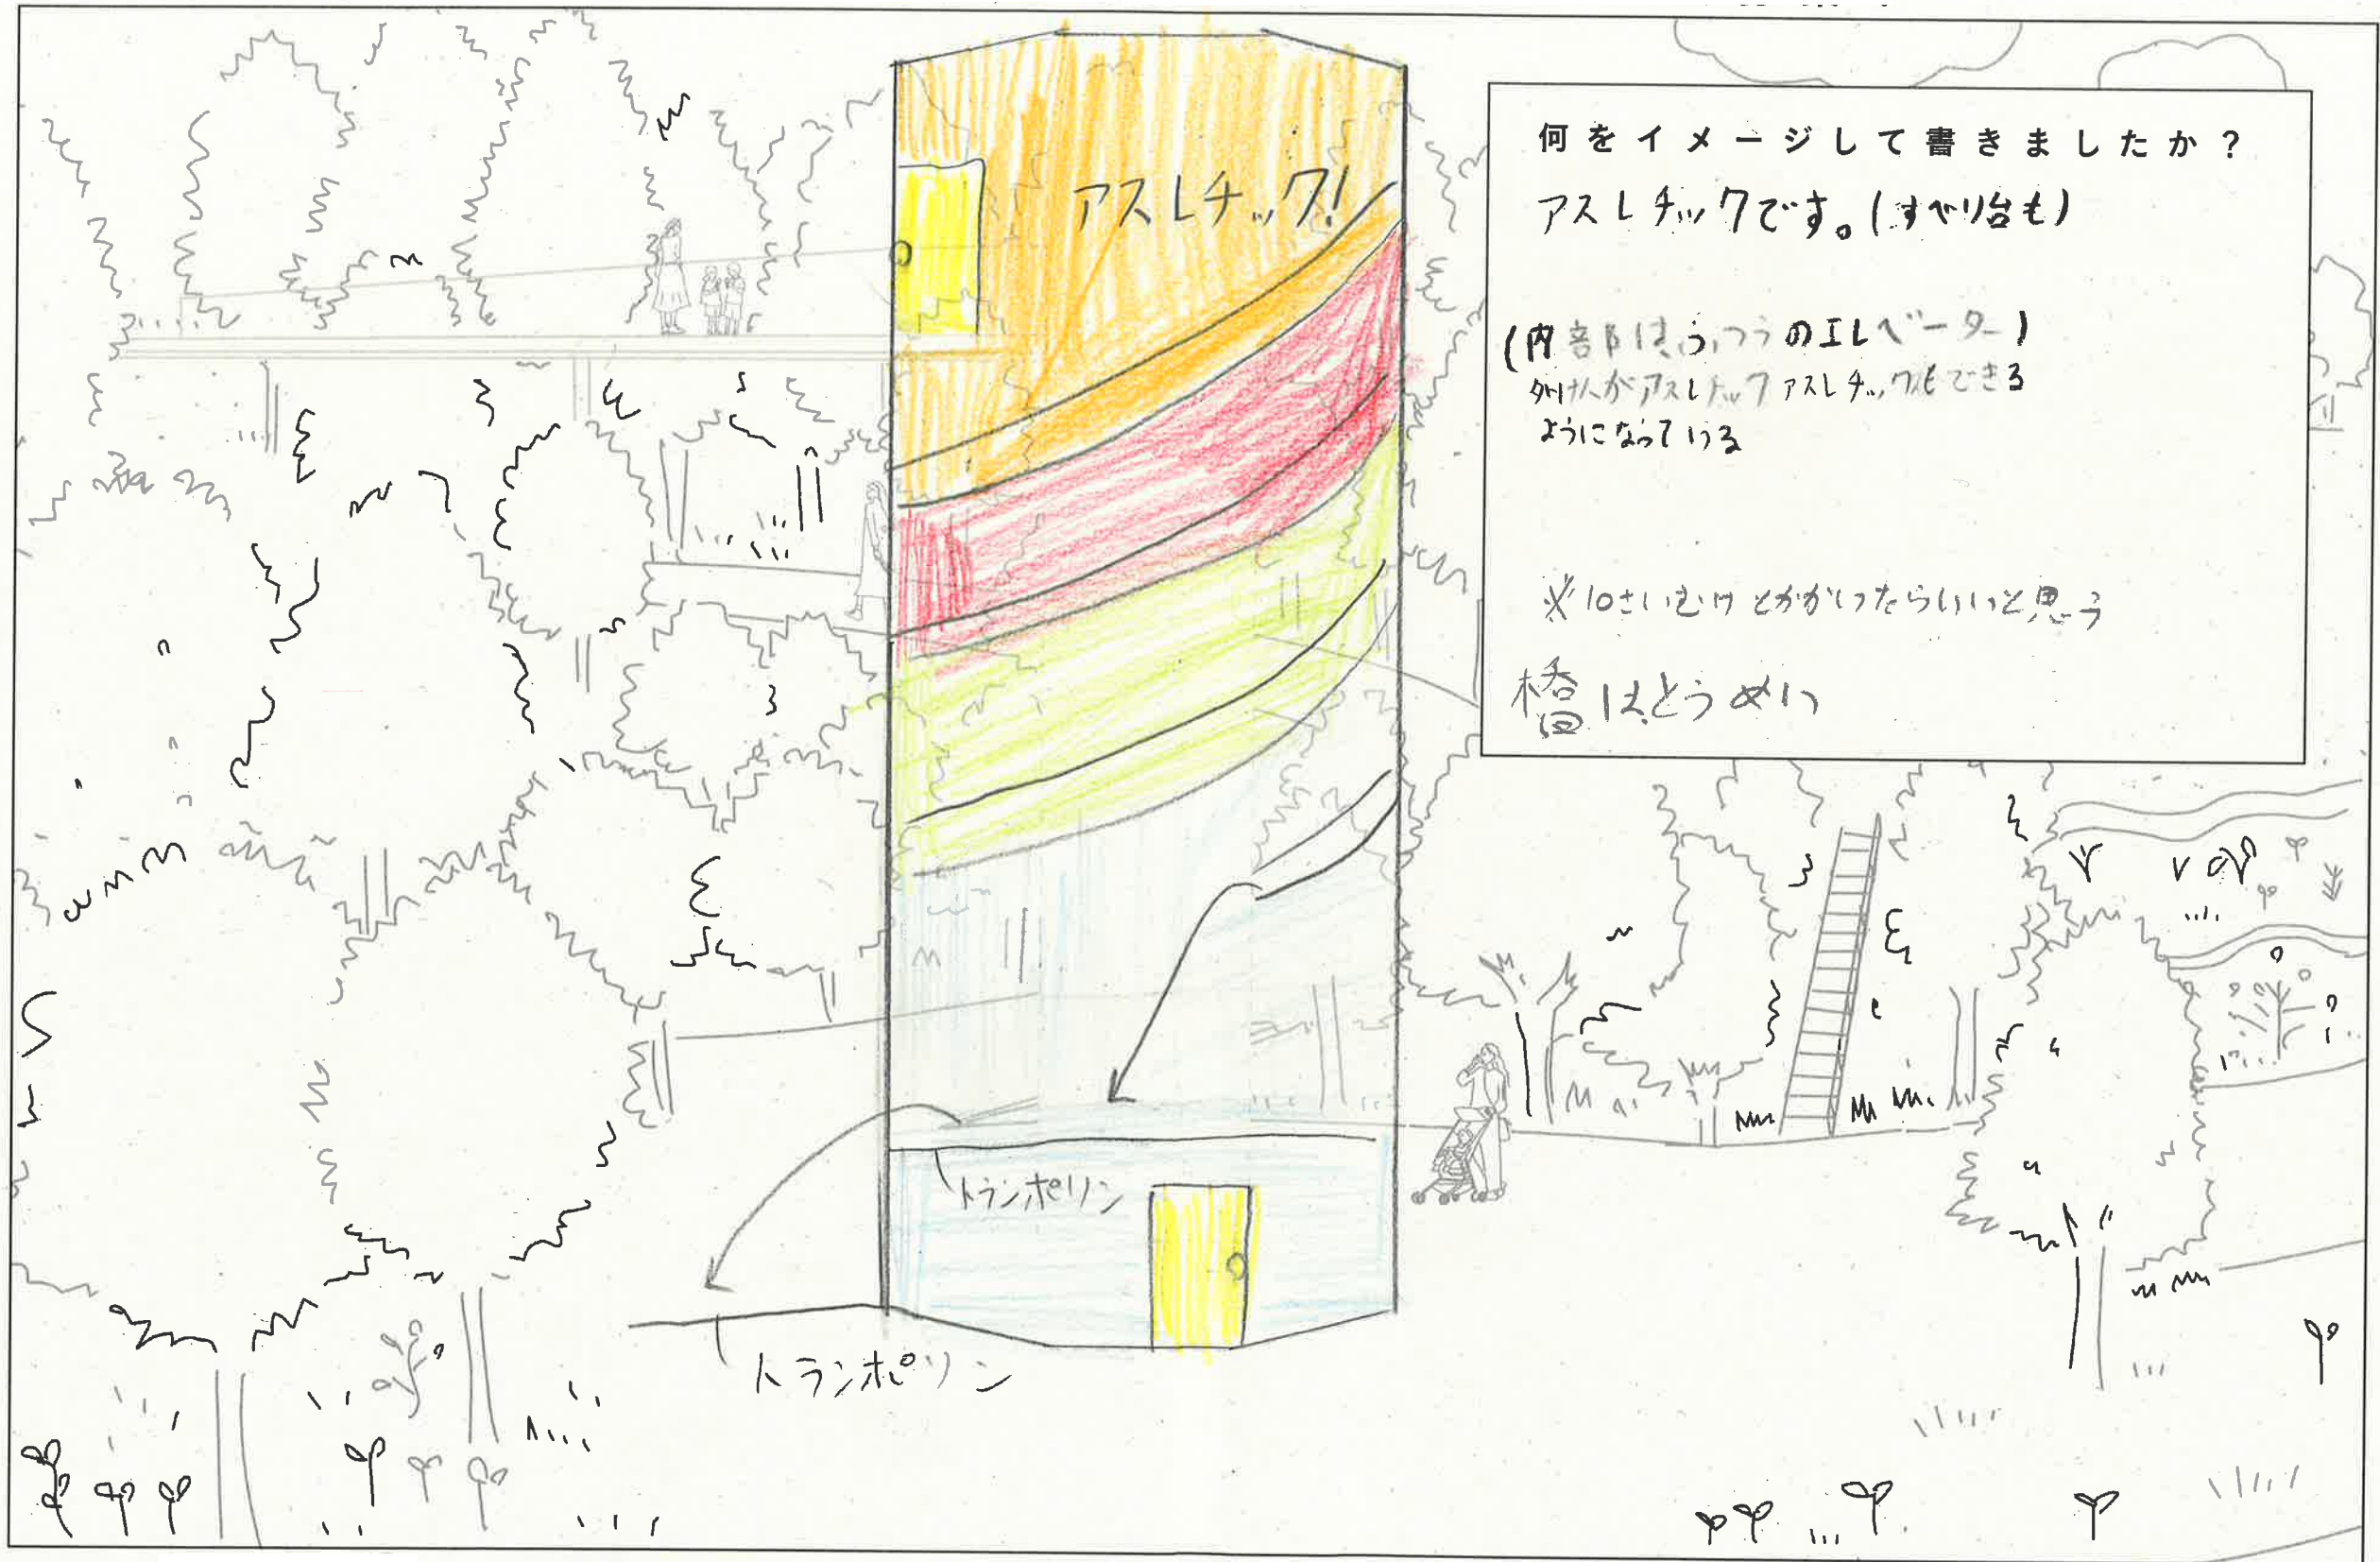 何をイメージして書きましたか?
アスレチックです。(すべり台も)
(内部は、ふつうのエレベーター)
外けんがアスレチック アスレチックもできる
ようになっている
※10さいむけとかがいったらいいと思う
橋はとうめい
アスレチック!
トランポリン
トランポリン